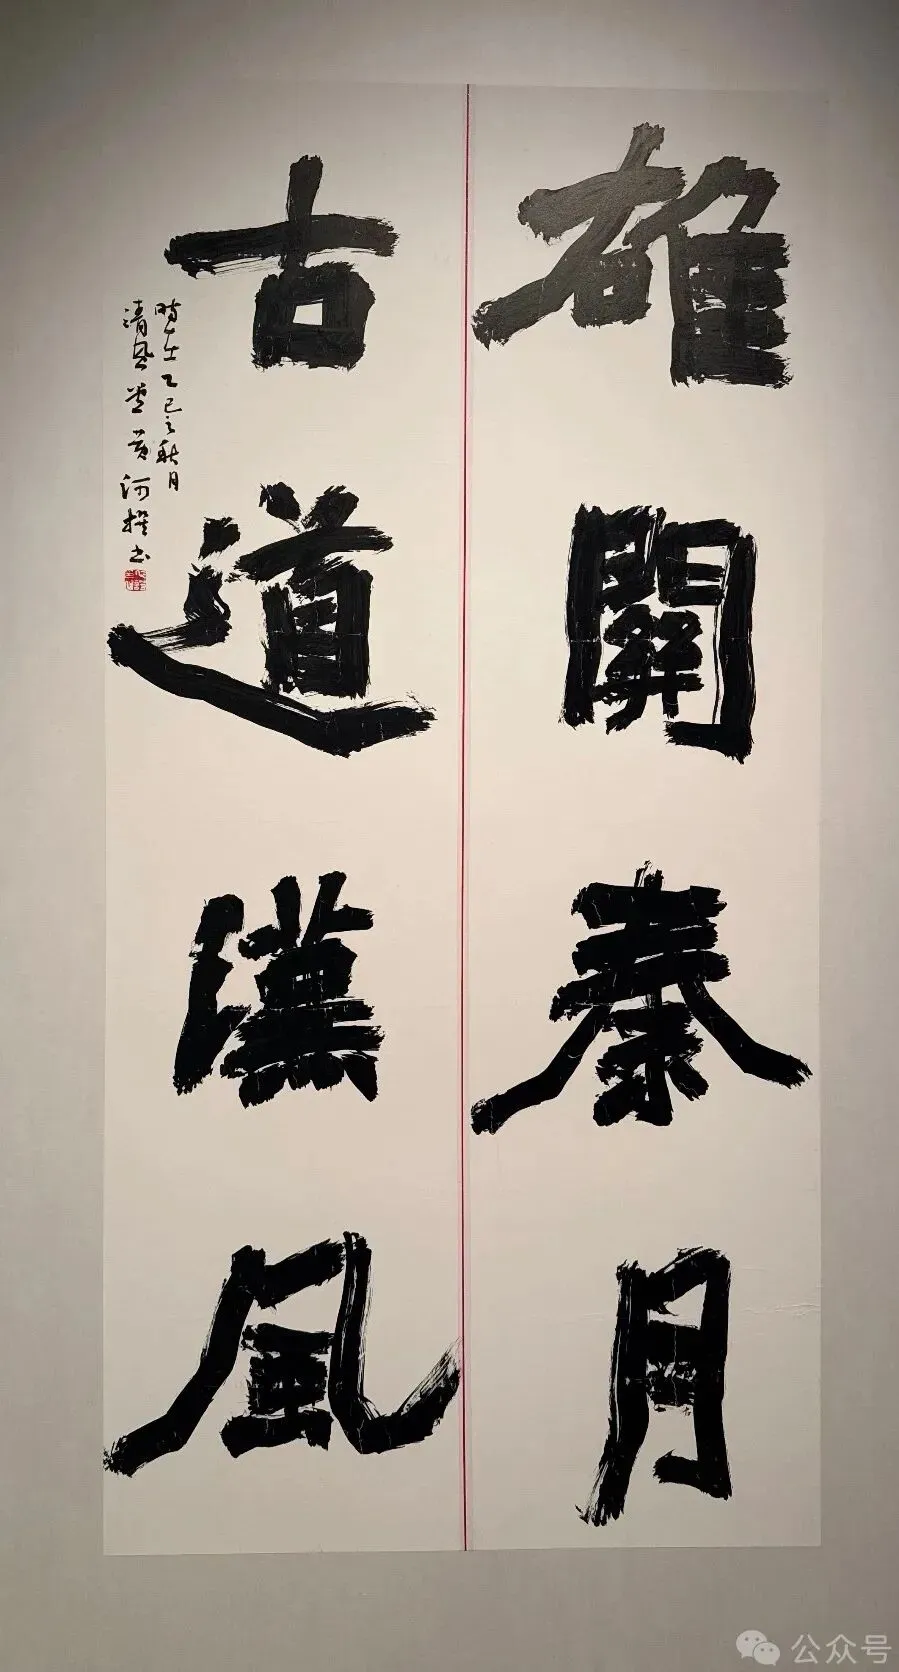 雄關秦月
古道漢風
時在乙巳之秋月
清風堂黄河撰书
公众号